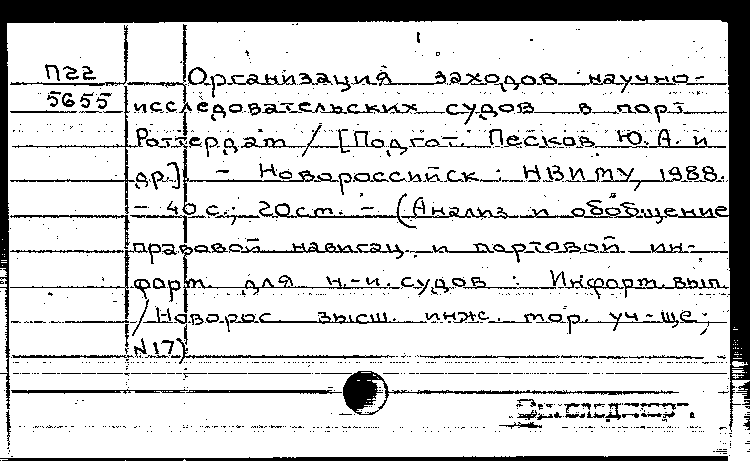 П22
5655
Организация заходов научно-
исследовательских судов в порт
Роттердам / [Подгот. Песков Ю.А. и
др.] - Новороссийск : НВИМУ, 1988.
- 40 с.; 20 см. - (Анализ и обобщение
правовой навигац. и портовой ин-
форм. для н.-и. судов : Информ. вып.
/ Новорос. высш. инж. мор. уч-ще;
N17)
См. след. карт.